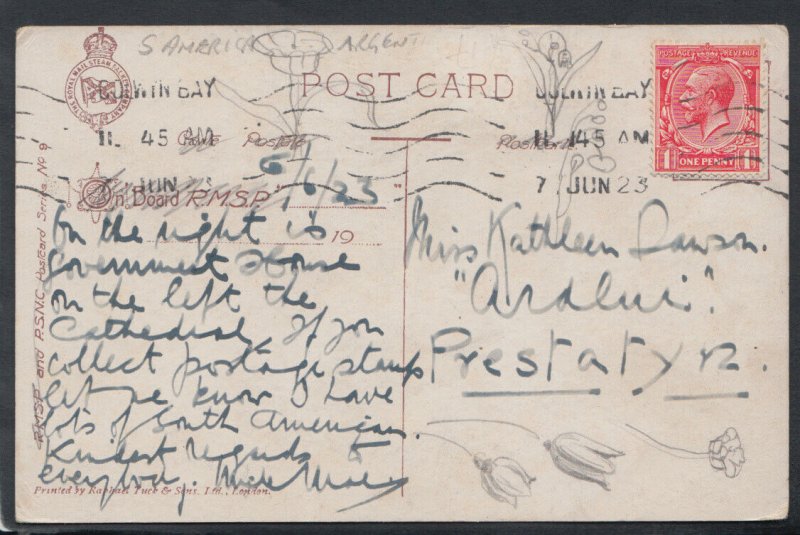 S AMERICA ARGENT
POST CARD
THE ROYAL MAIL STEAM PACKET COMPANY
COLWYN BAY
11 45 AM
7 JUN 23
COLWYN BAY
11 45 AM
7 JUN 23
POSTAGE REVENUE
1 ONE PENNY 1
On Board R.M.S.P.
19
6/6/23
On the right is
Government House
on the left the
Cathedral. If you
collect postage stamps
let me know I have
lots of South American.
Kindest regards to
everybody.
Miss Kathleen Dawson.
Prestatyn.
R.M.S.P. and P.S.N.C. Postcard Series No 9
Printed by Raphael Tuck & Sons, Ltd., London.